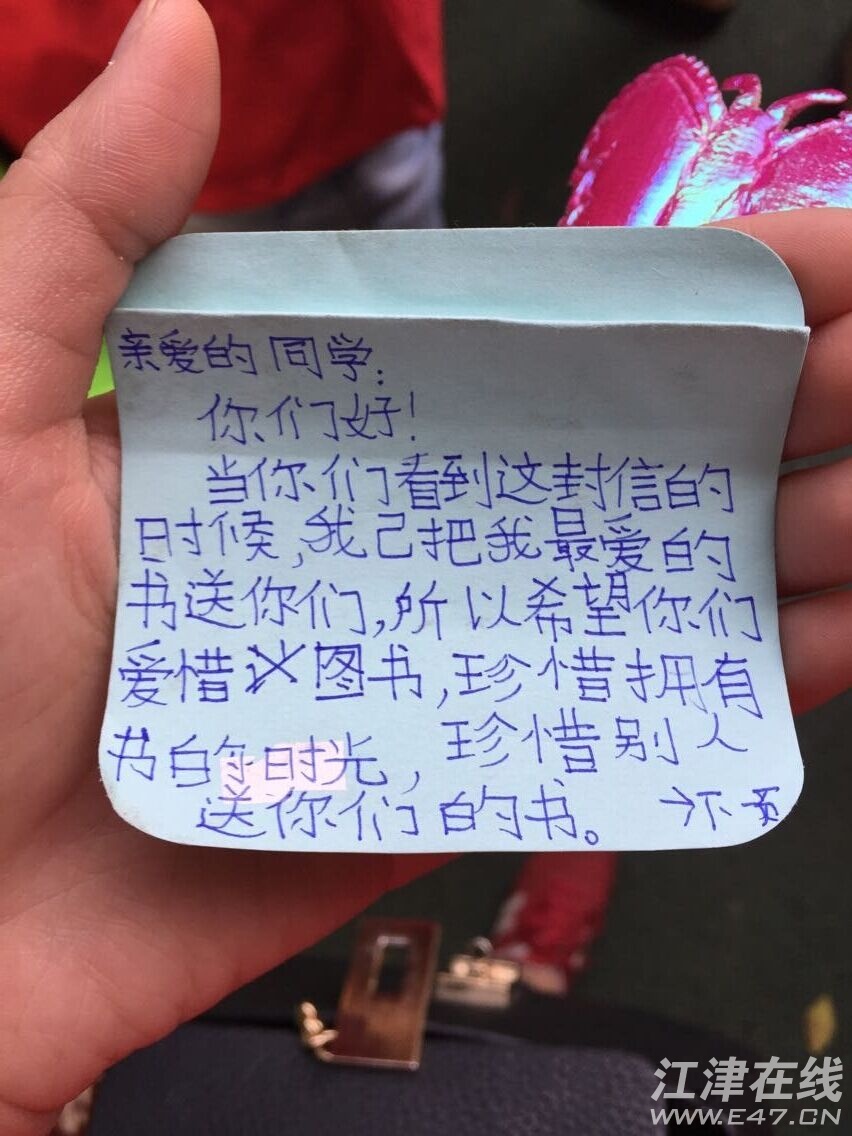 亲爱的同学：
你们好！
当你们看到这封信的
时候，我己把我最爱的
书送你们，所以希望你们
爱惜图书，珍惜拥有
书的时光，珍惜别人
送你们的书。 →下页
江津在线
WWW.E47.CN